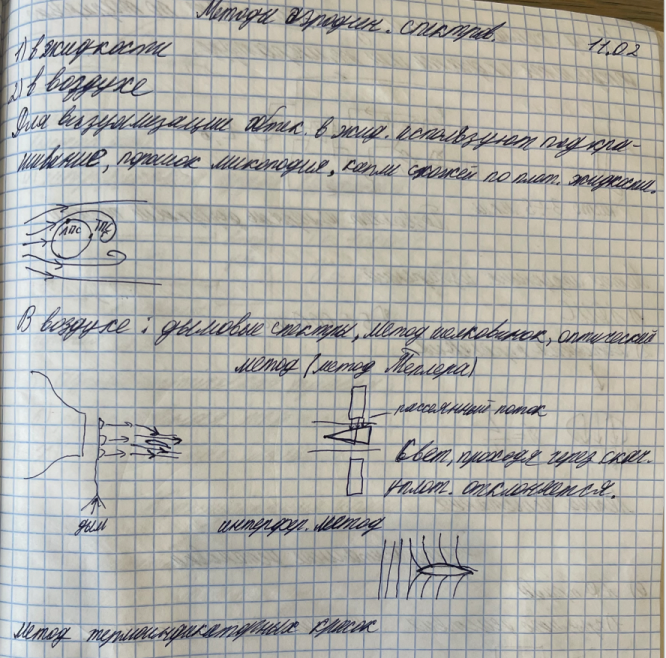 Методы аэродин. спектров.
11.02
1) в жидкости
2) в воздухе
Для визуализации обтек. в жид. используют подкра-
шивание, порошок ликоподия, капли схожей по плот. жидкости.
ЛПС ТПС
В воздухе: дымовые спектры, метод шелковинок, оптический
метод (метод Теплера)
рассеянный поток
Свет, проходя через скач.
уплот. отклоняется.
дым
интерфер. метод
метод термоиндикаторных красок